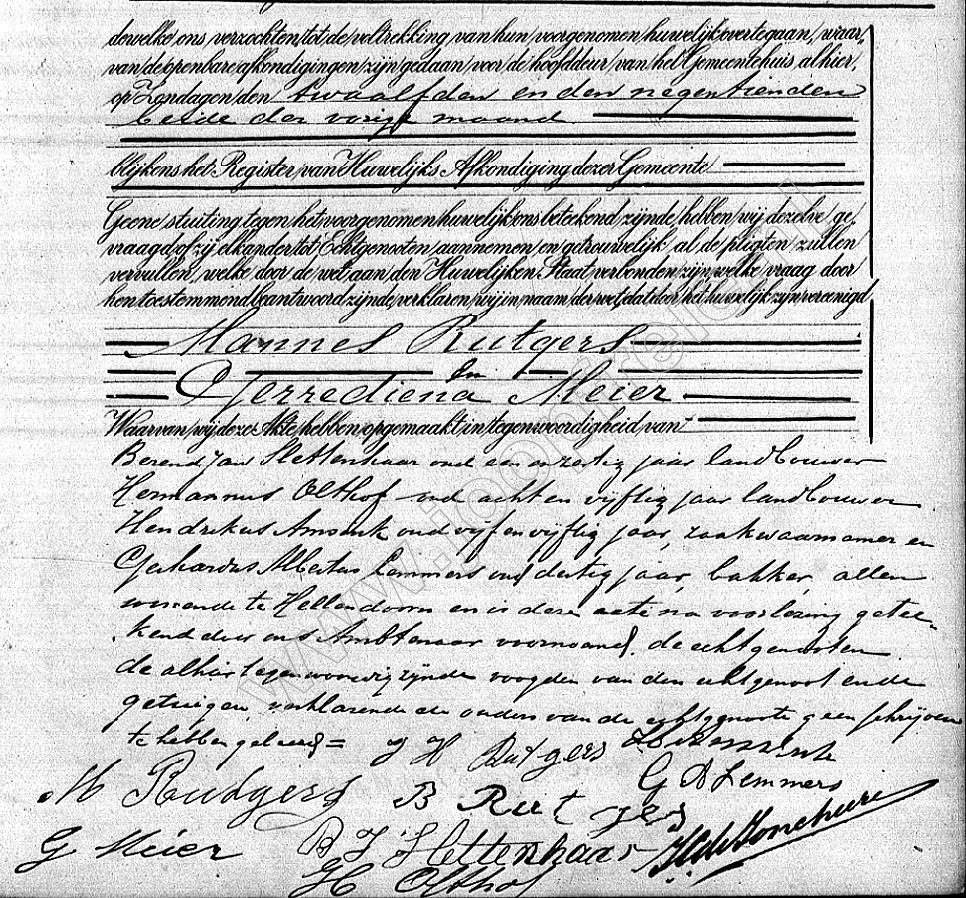 dewelke ons verzochten tot de voltrekking van hun voorgenomen huwelijk overtegaan, waar-
van de openbare afkondigingen zijn gedaan voor de hoofddeur van het Gemeentehuis alhier,
op Zondagen den twaalfden en den negentienden
beide der vorige maand
blijkens het Register van Huwelijks Afkondiging dezer Gemeente
Geene stuiting tegen het voorgenomen huwelijk ons beteekend zijnde, hebben wij dezelve ge-
vraagd, of zij elkander tot Echtgenooten aannemen en getrouwelijk al de pligten zullen
vervullen, welke door de wet aan den Huwelijken Staat verbonden zijn, welke vraag door
hen toestemmend beantwoord zijnde, verklaren wij in naam der wet, dat door het huwelijk zijn vereenigd
Mannes Rutgers
En
Gerrediena Meier
Waarvan wij deze Akte hebben opgemaakt in tegenwoordigheid van
Berend Jan Flettenhaar oud een en zestig jaar landbouwer
Hermannus Olthof oud acht en vijftig jaar landbouwer
Hendrikus Amsink oud vijf en vijftig jaar, zaakwaarnemer en
Gerhardus Albertus Lammers oud dertig jaar, bakker, allen
wonende te Hellendoorn en is deze acte na voorlezing getee-
kend door ons Ambtenaar voornoemd, de echtgenooten
de alhier tegenwoordig zijnde voogden van den echtgenoot en de
getuigen, verklarende de ouders van de echtgenoote geen schrijven
te hebben geleerd =
J H Rutgers
M Rudgers
B Rutgers
G A Lemmers
G Meier
B J Flettenhaar
H Olthof
www.jooprelet.nl